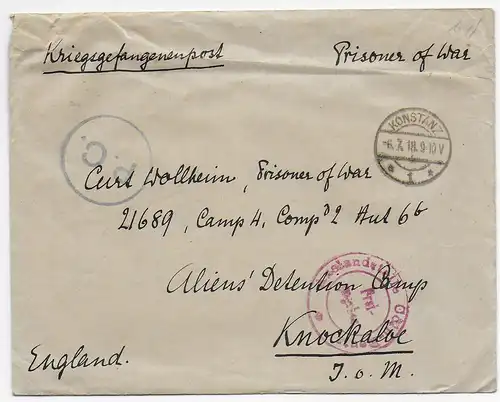 Kriegsgefangenenpost Prisoner of War
KONSTANZ
-6.7.18.9-10V
* 1 *
P.C.
Curt Wollheim, Prisoner of War
21689, Camp 4, Comp^d 2 Hut 6^b
Aliens' Detention Camp
Knockaloe
England. I.o.M.